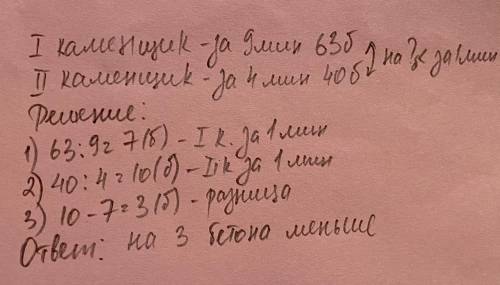 I каменщик - за 9 мин 63б
II каменщик - за 4 мин 40б на ? < за 1 мин
Решение:
1) 63:9=7(б) - I к. за 1 мин
2) 40:4=10(б) - II к за 1 мин
3) 10-7=3(б) - разница
Ответ: на 3 бетона меньше